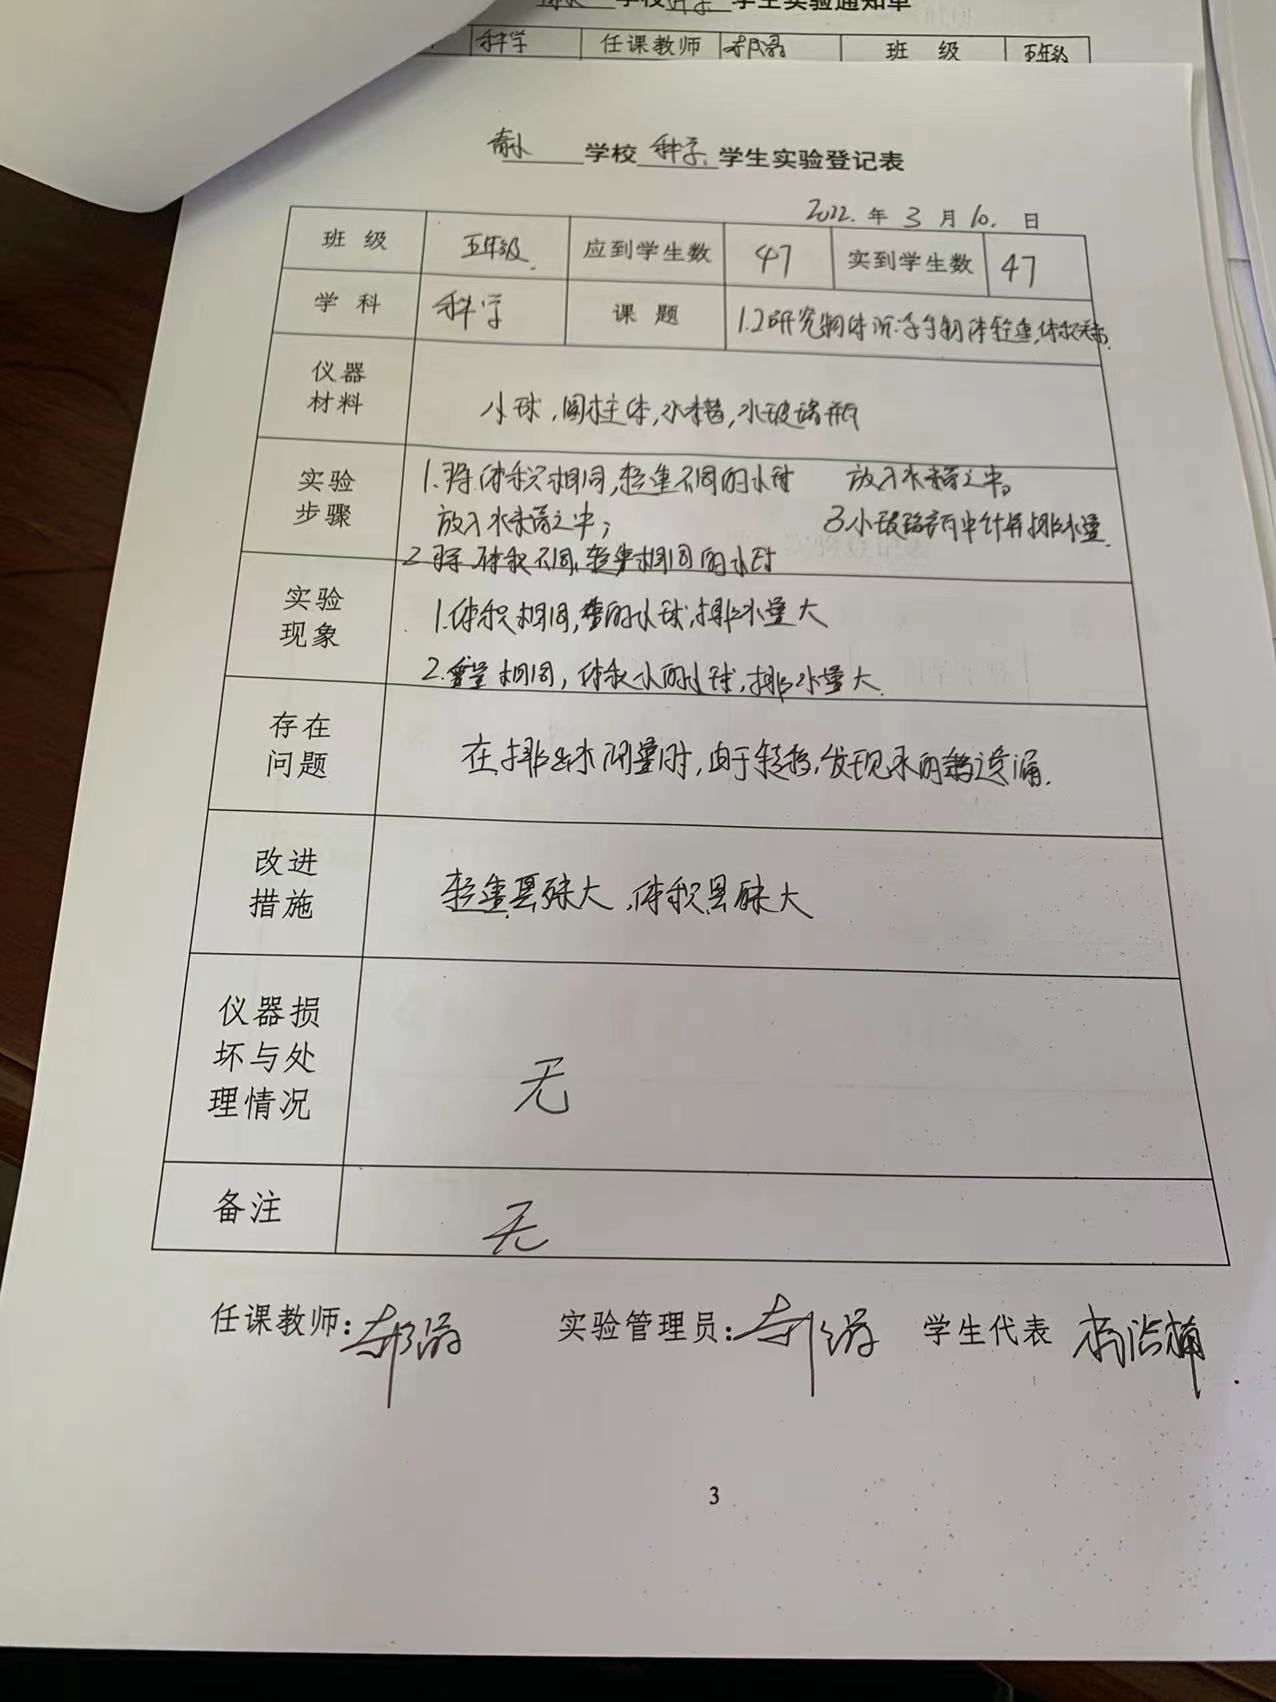 学校 科学 学生实验通知单
科学 任课教师 班 级 五年级
学校 科学 学生实验登记表
2022.年 3 月 10. 日
班 级 五年级. 应到学生数 47 实到学生数 47
学 科 科学 课 题 1.2研究物体沉浮与物体轻重,体积关系.
仪器
材料
小球,圆柱体,水槽,小玻璃瓶
实验
步骤
1.将体积相同,轻重不同的小球
放入水槽之中;
2.将体积不同,轻重相同的小球
放入水槽之中。
3.小玻璃瓶中计算排水量
实验
现象
1.体积相同,重的小球,排水量大
2.重量相同,体积小的小球,排水量大.
存在
问题
在排出水测量时,由于转移,发现水的遗漏.
改进
措施
轻重悬殊大,体积悬殊大
仪器损
坏与处
理情况
无
备注
无
任课教师: 实验管理员: 学生代表
3